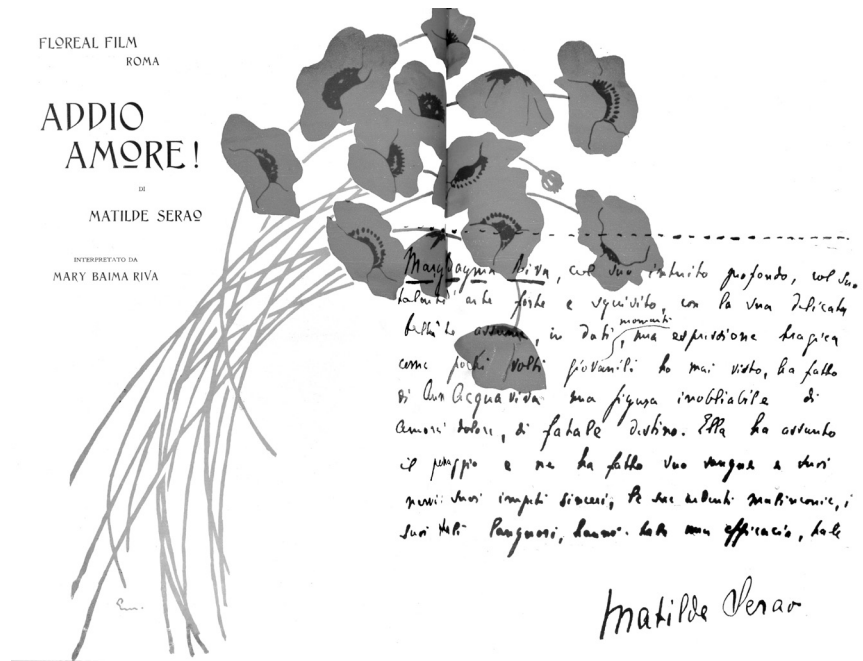 FLOREAL FILM
ROMA
ADDIO
AMORE!
DI
MATILDE SERAO
INTERPRETATO DA
MARY BAIMA RIVA
Mary Bayma Riva, col suo intuito profondo, col suo
talento d'arte forte e squisito, con la sua delicata
assume, in dati momenti, una espressione tragica
come pochi volti giovanili ho mai visto, ha fatto
di Anna Acquaviva una figura inobliabile di
amore, dolore, di fatale destino. Ella ha assunto
il personaggio e ne ha fatto suo sangue e suoi
nervi: suoi impeti sinceri, le sue ardenti malinconie, i
suoi languori, hanno una efficacia, tale
Matilde Serao